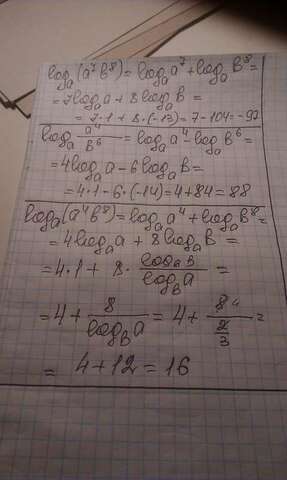 log_a(a⁷b⁸)=log_a a⁷+log_a b⁸=
=7log_a a+8log_a b=
=7·1+8·(-13)=7-104=-97
log_a a⁴/b⁶=log_a a⁴-log_a b⁶=
=4log_a a-6log_a b=
=4·1-6·(-14)=4+84=88
log_a(a⁴b⁸)=log_a a⁴+log_a b⁸=
=4log_a a+8log_a b=
=4·1+8·log_b b/log_b a=
=4+8/log_b a=4+8/(2/3)=
=4+12=16